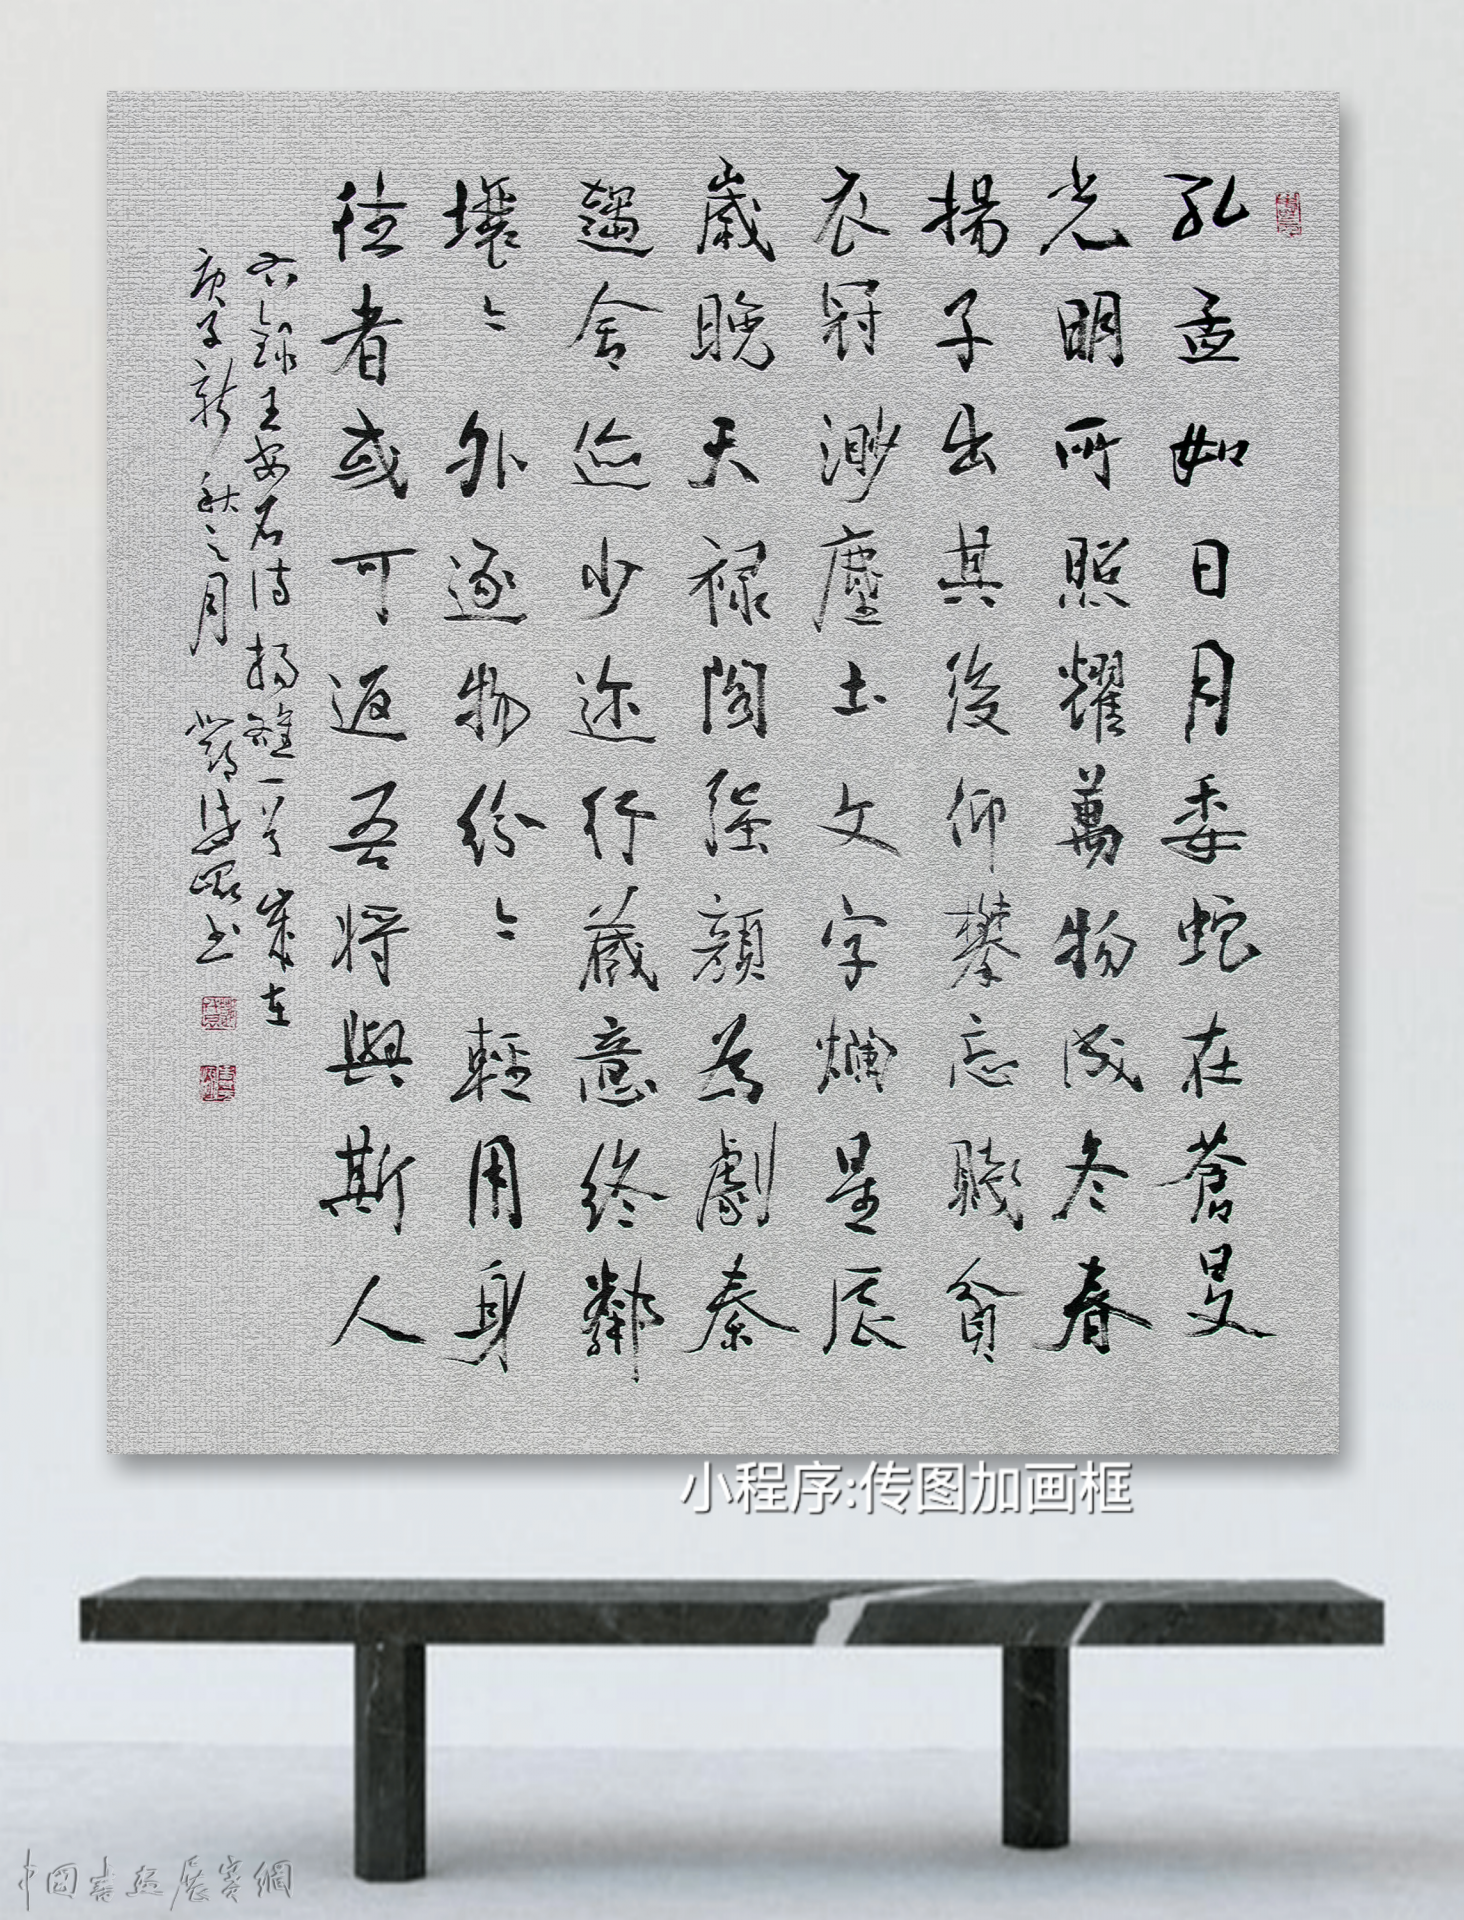 孔孟如日月委蛇在蒼旻
光明所照耀萬物成冬春
揚子出其後仰攀忘賤貧
衣冠渺塵土文字爛星辰
歲晚天祿閣强顏為劇秦
趨舍迹少迩行藏意終鄰
壤〻外逐物紛〻輕用身
往者或可返吾將與斯人
右錄王安石诗揚雄一首 歲在
庚子新秋之月 书
小程序:传图加画框
中国書画展賽網